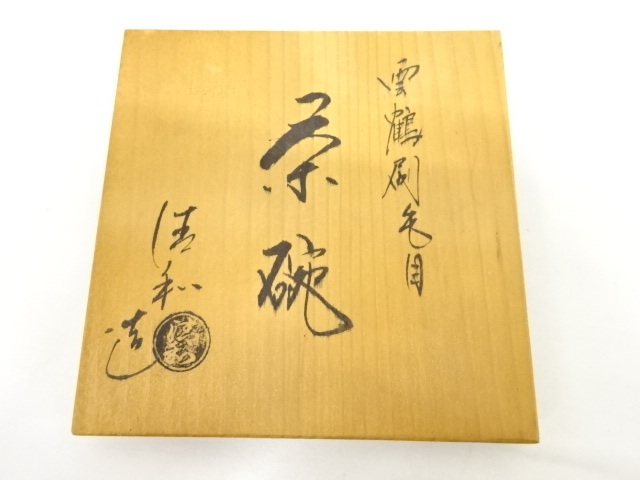 雲鶴刷毛目
茶碗
清和造